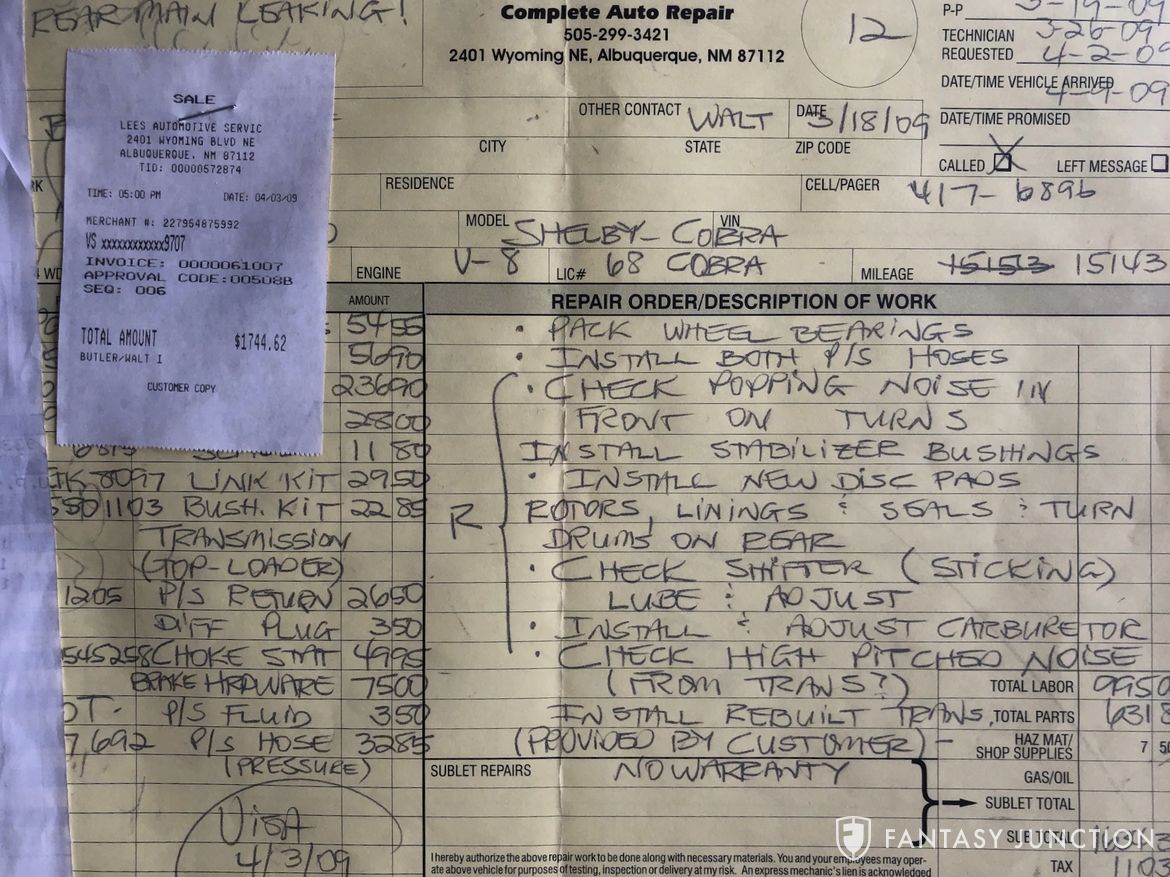 REAR MAIN LEAKING!
Complete Auto Repair
505-299-3421
2401 Wyoming NE, Albuquerque, NM 87112
12
P-P 3-19-09
TECHNICIAN 3-26-09
REQUESTED 4-2-09
DATE/TIME VEHICLE ARRIVED
4-9-09
DATE/TIME PROMISED
OTHER CONTACT WALT DATE 3/18/09
CITY STATE ZIP CODE
CALLED LEFT MESSAGE
RESIDENCE CELL/PAGER 417-6896
MODEL SHELBY-COBRA VIN
ENGINE V-8 LIC# 68 COBRA MILEAGE 15153 15143
SALE
LEES AUTOMOTIVE SERVIC
2401 WYOMING BLVD NE
ALBUQUERQUE, NM 87112
TID: 00000572874
TIME: 05:00 PM DATE: 04/03/09
MERCHANT #: 227954875992
VS xxxxxxxxxxxx9707
INVOICE: 0000061007
APPROVAL CODE:00508B
SEQ: 006
TOTAL AMOUNT $1744.62
BUTLER/WALT I
CUSTOMER COPY
AMOUNT
5455
5690
23690
2800
1180
8097 LINK KIT 2950
5501103 BUSH. KIT 2285
TRANSMISSION
(TOP-LOADER)
1205 P/S RETURN 2650
DIFF PLUG 350
545258 CHOKE STAT 4995
BRAKE HRDWARE 7500
P/S FLUID 350
7,692 P/S HOSE 3285
(PRESSURE)
Visa
4/3/09
REPAIR ORDER/DESCRIPTION OF WORK
• PACK WHEEL BEARINGS
• INSTALL BOTH P/S HOSES
• CHECK POPPING NOISE IN
FRONT ON TURNS
INSTALL STABILIZER BUSHINGS
• INSTALL NEW DISC PADS
R ROTORS, LININGS & SEALS & TURN
DRUMS ON REAR
• CHECK SHIFTER (STICKING)
LUBE & ADJUST
• INSTALL & ADJUST CARBURETOR
• CHECK HIGH PITCHED NOISE
(FROM TRANS?)
INSTALL REBUILT TRANS,
(PROVIDED BY CUSTOMER)-
NO WARRANTY
TOTAL LABOR 9950
TOTAL PARTS 6318
HAZ MAT/
SHOP SUPPLIES 7 50
SUBLET REPAIRS
GAS/OIL
SUBLET TOTAL
SUB TOTAL
TAX 1103
I hereby authorize the above repair work to be done along with necessary materials. You and your employees may oper-
ate above vehicle for purposes of testing, inspection or delivery at my risk. An express mechanic's lien is acknowledged
FANTASY JUNCTION